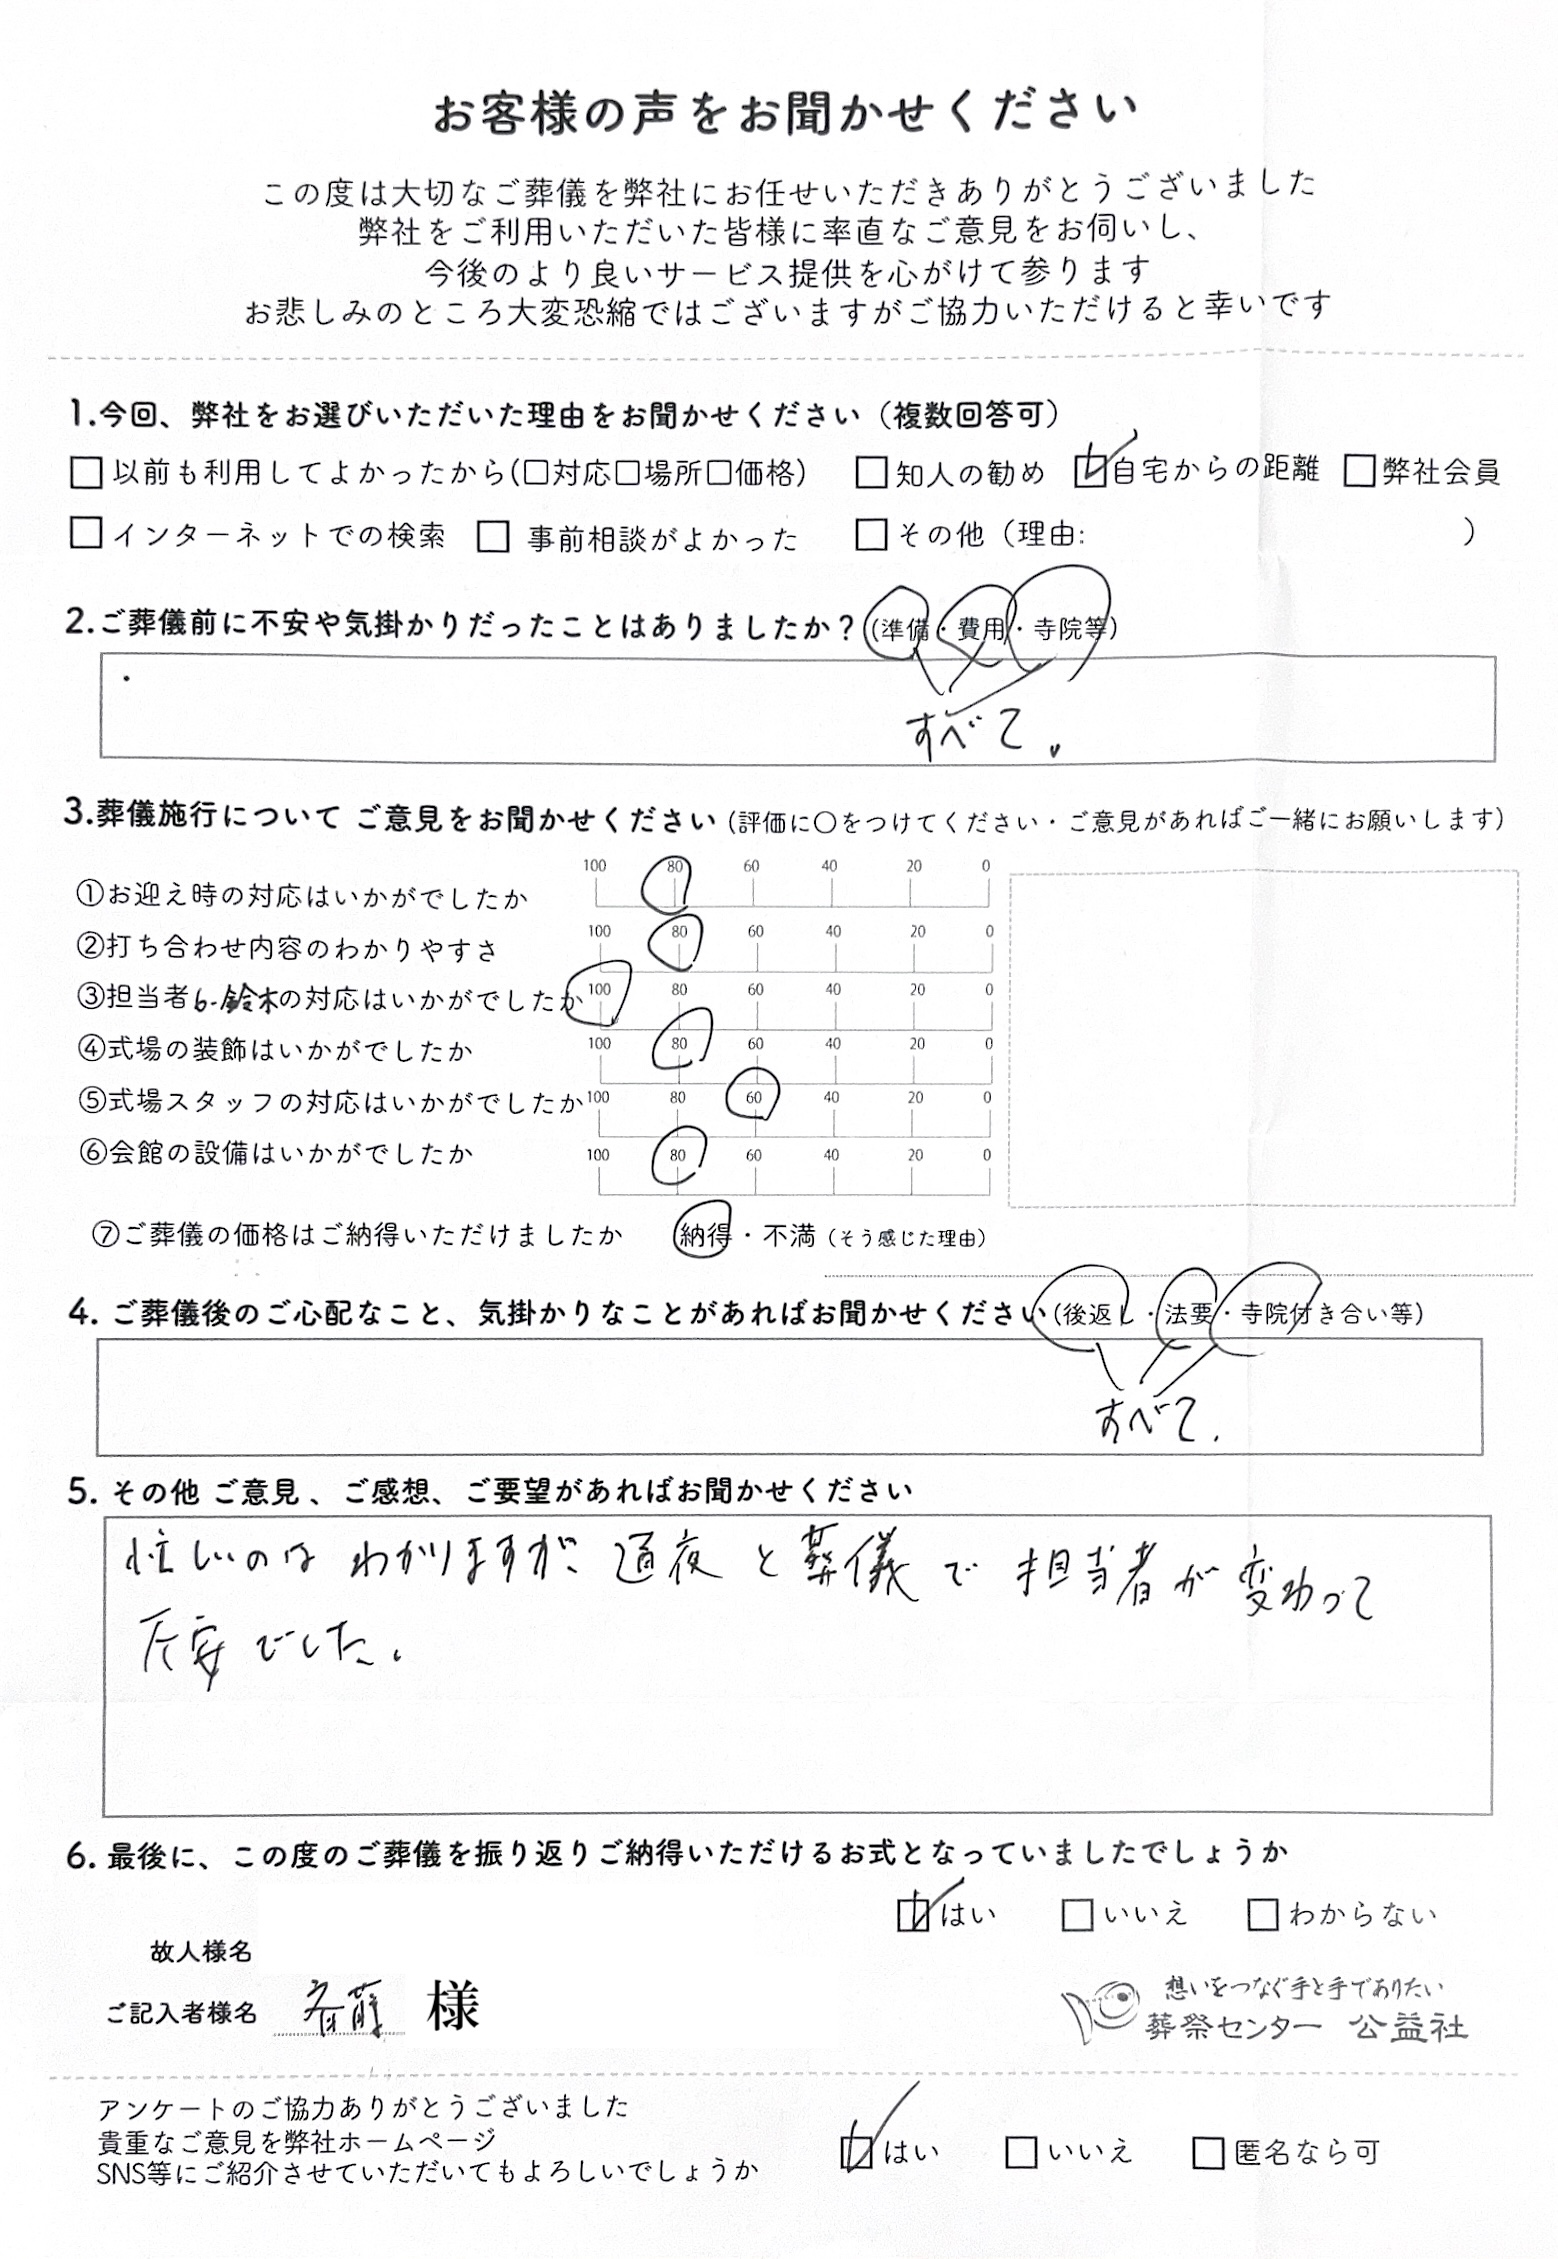 お客様の声をお聞かせください
この度は大切なご葬儀を弊社にお任せいただきありがとうございました
弊社をご利用いただいた皆様に率直なご意見をお伺いし、
今後のより良いサービス提供を心がけて参ります
お悲しみのところ大変恐縮ではございますがご協力いただけると幸いです
1.今回、弊社をお選びいただいた理由をお聞かせください（複数回答可）
□以前も利用してよかったから(□対応□場所□価格) □知人の勧め ☑自宅からの距離 □弊社会員
□インターネットでの検索 □ 事前相談がよかった □その他（理由: ）
2.ご葬儀前に不安や気掛かりだったことはありましたか？(準備・費用・寺院等)
すべて。
3.葬儀施行について ご意見をお聞かせください (評価に〇をつけてください・ご意見があればご一緒にお願いします)
①お迎え時の対応はいかがでしたか 100 80 60 40 20 0
②打ち合わせ内容のわかりやすさ 100 80 60 40 20 0
③担当者 鈴木の対応はいかがでしたか 100 80 60 40 20 0
④式場の装飾はいかがでしたか 100 80 60 40 20 0
⑤式場スタッフの対応はいかがでしたか 100 80 60 40 20 0
⑥会館の設備はいかがでしたか 100 80 60 40 20 0
⑦ご葬儀の価格はご納得いただけましたか 納得・不満（そう感じた理由）
4. ご葬儀後のご心配なこと、気掛かりなことがあればお聞かせください(後返し・法要・寺院付き合い等)
すべて.
5. その他 ご意見、ご感想、ご要望があればお聞かせください
忙しいのは わかりますが、通夜 と 葬儀 で 担当者 が 変わって
不安 でした。
6. 最後に、この度のご葬儀を振り返りご納得いただけるお式となっていましたでしょうか
☑はい □いいえ □わからない
故人様名
ご記入者様名 斉藤 様
想いをつなぐ手と手でありたい
葬祭センター 公益社
アンケートのご協力ありがとうございました
貴重なご意見を弊社ホームページ
SNS等にご紹介させていただいてもよろしいでしょうか ☑はい □いいえ □匿名なら可